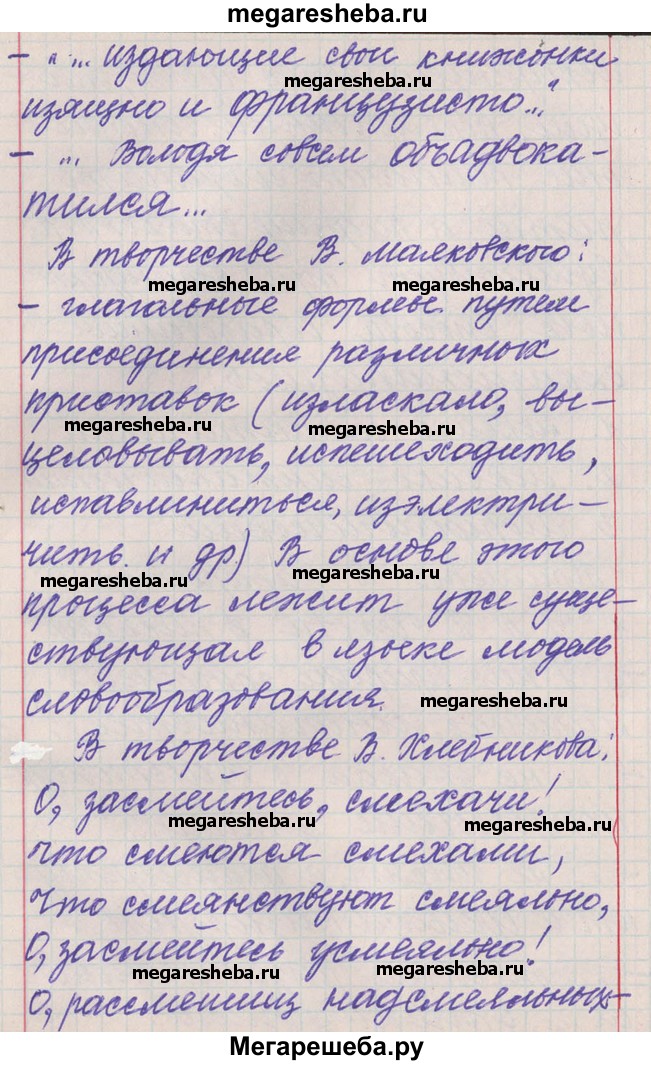 megaresheba.ru
– „... издающие свои книжонки
megaresheba.ru
изящно и французисто..."
– ... Володя совсем объадвока-
тился...
В творчестве В. Маяковского:
megaresheba.ru megaresheba.ru
– глагольные формы путем
присоединения различных
приставок (изласкало, вы-
megaresheba.ru megaresheba.ru
целовывать, испешеходить,
иставлиниться, изэлектри-
чить и др.) В основе этого
megaresheba.ru megaresheba.ru
процесса лежит уже суще-
ствующая в языке модель
словообразования. megaresheba.ru
В творчестве В. Хлебникова:
О, засмейтесь, смехачи!
megaresheba.ru megaresheba.ru
Что смеются смехами,
Что смеянствуют смеяльно,
О, засмейтесь усмеяльно!
megaresheba.ru megaresheba.ru
О, рассмешищ надсмеяльных-
Мегарешеба.ру